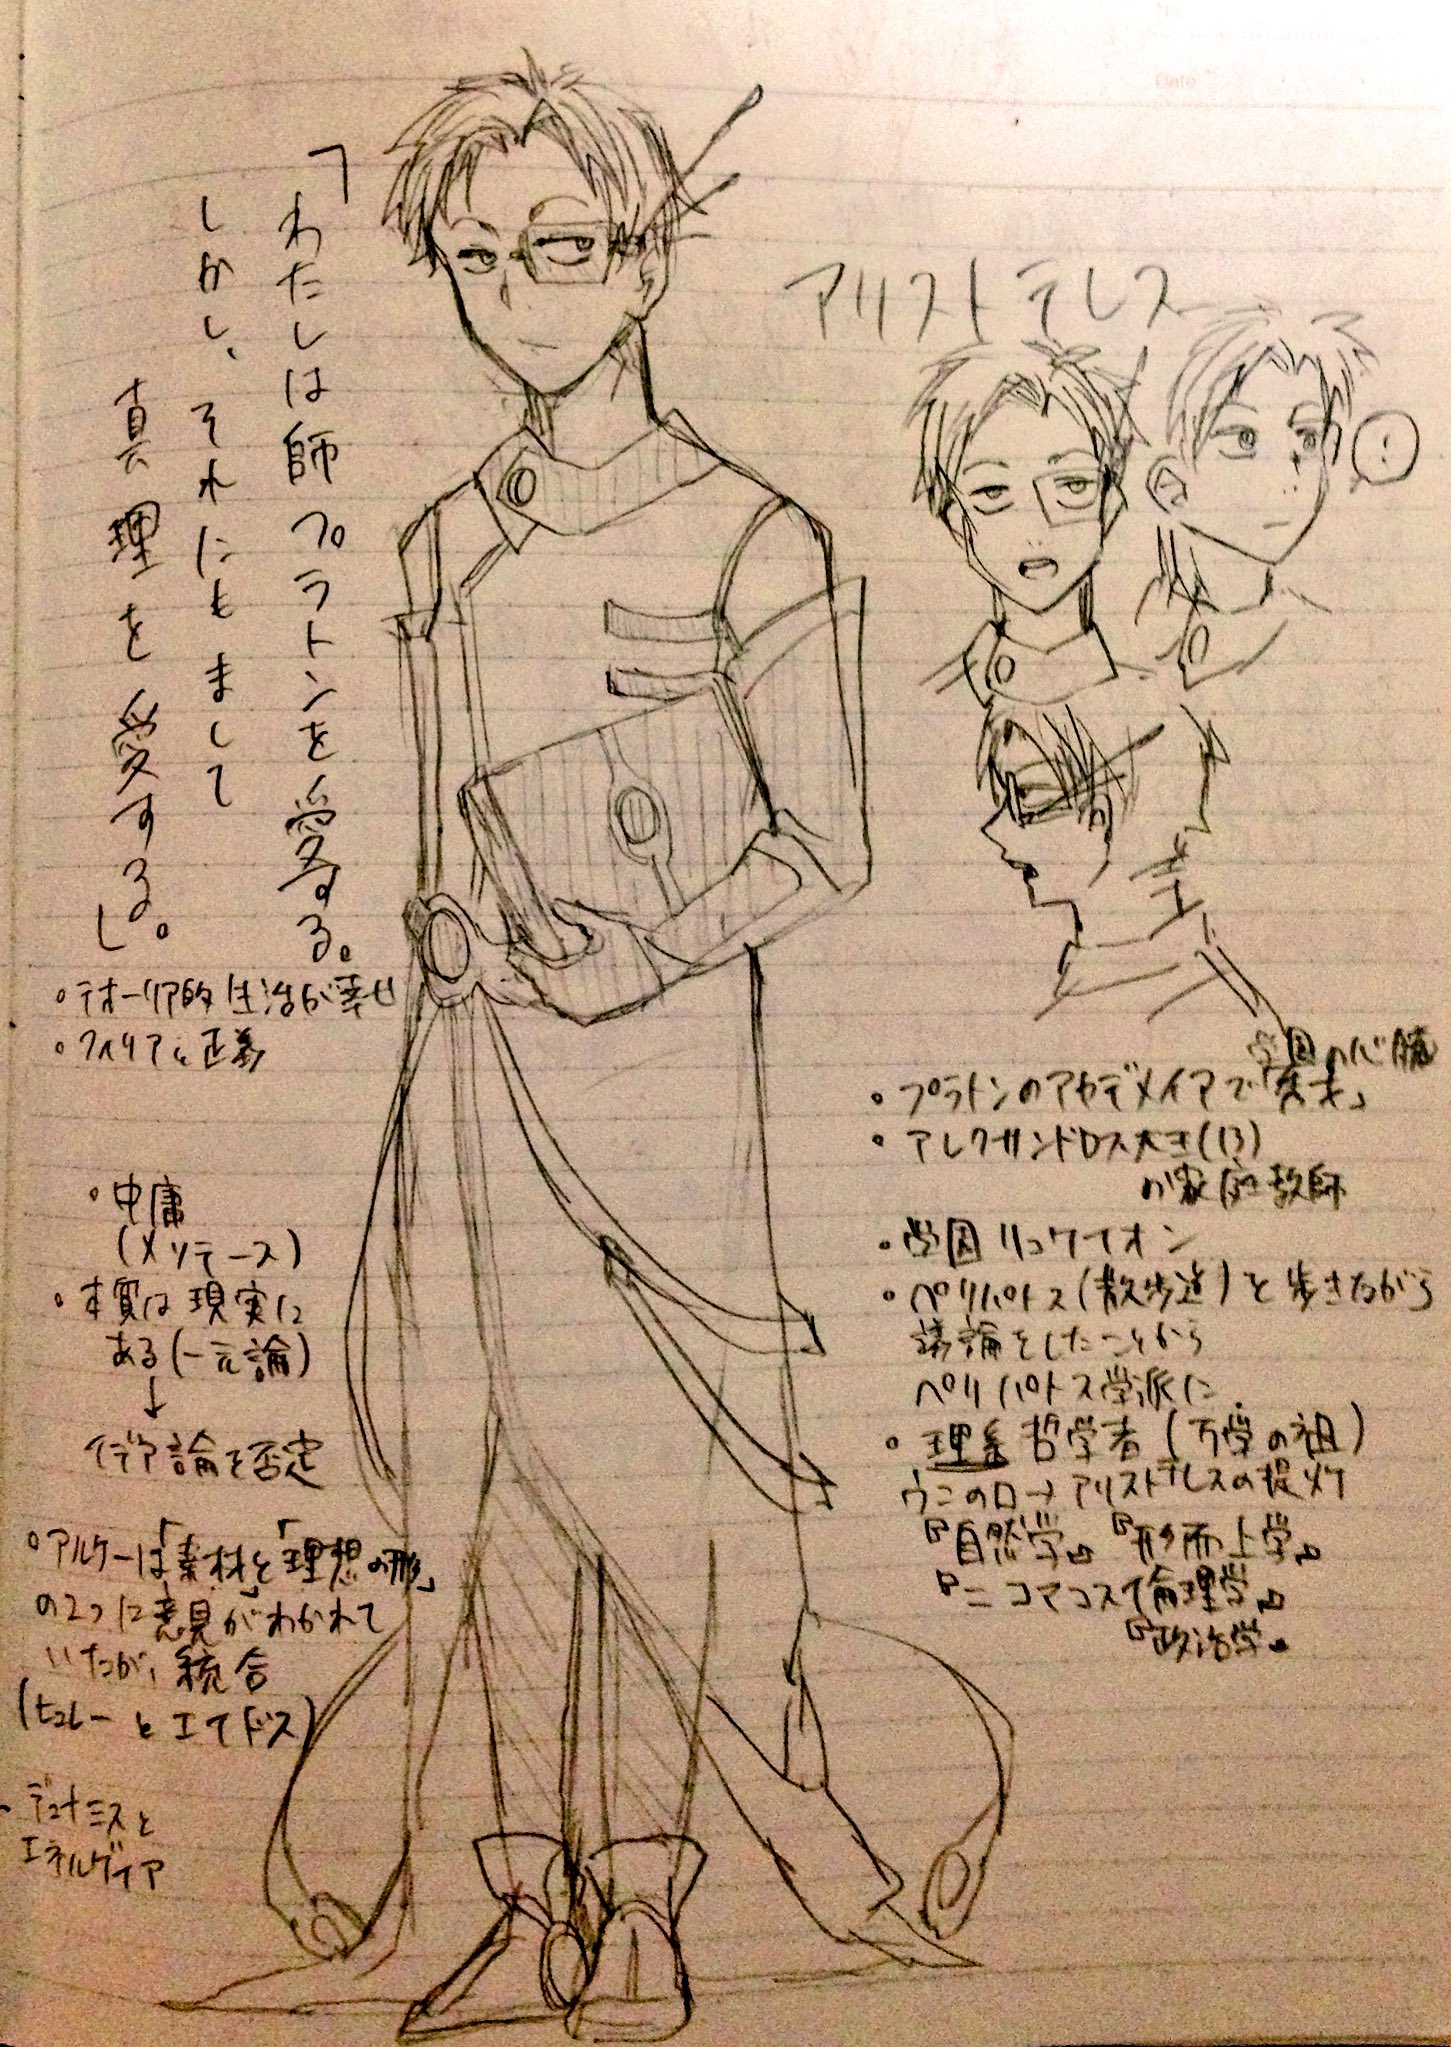 アリストテレス
「わたしは師プラトンを愛する。
しかし、それにもまして
真理を愛するし。」
!
・テオーリア的生活が幸せ
・フィリアと正義
・中庸
(メソテース)
・本質は現実に
ある(一元論)
↓
イデア論を否定
・アルケーは「素材」と「理想の形」
の2つに意見がわかれて
いたが、統合
(ヒュレーとエイドス)
・デュナミスと
エネルゲイア
学園の心臓
・プラトンのアカデメイアで「秀才」
・アレクサンドロス大王(13)
の家庭教師
・学園リュケイオン
・ペリパトス(散歩道)を歩きながら
議論をしたことから
ペリパトス学派に
・理系哲学者(万学の祖)
ウニの口→アリストテレスの提灯
『自然学』『形而上学』
『ニコマコス倫理学』
『政治学』
Date